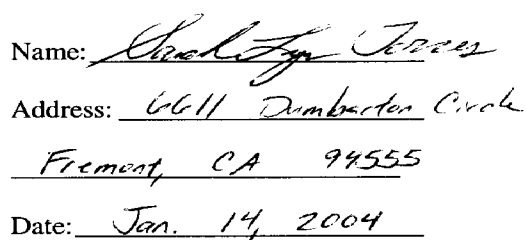 Name: Sarah Lyn Torres
Address: 6611 Dumbarton Circle
Fremont, CA 94555
Date: Jan. 14, 2004